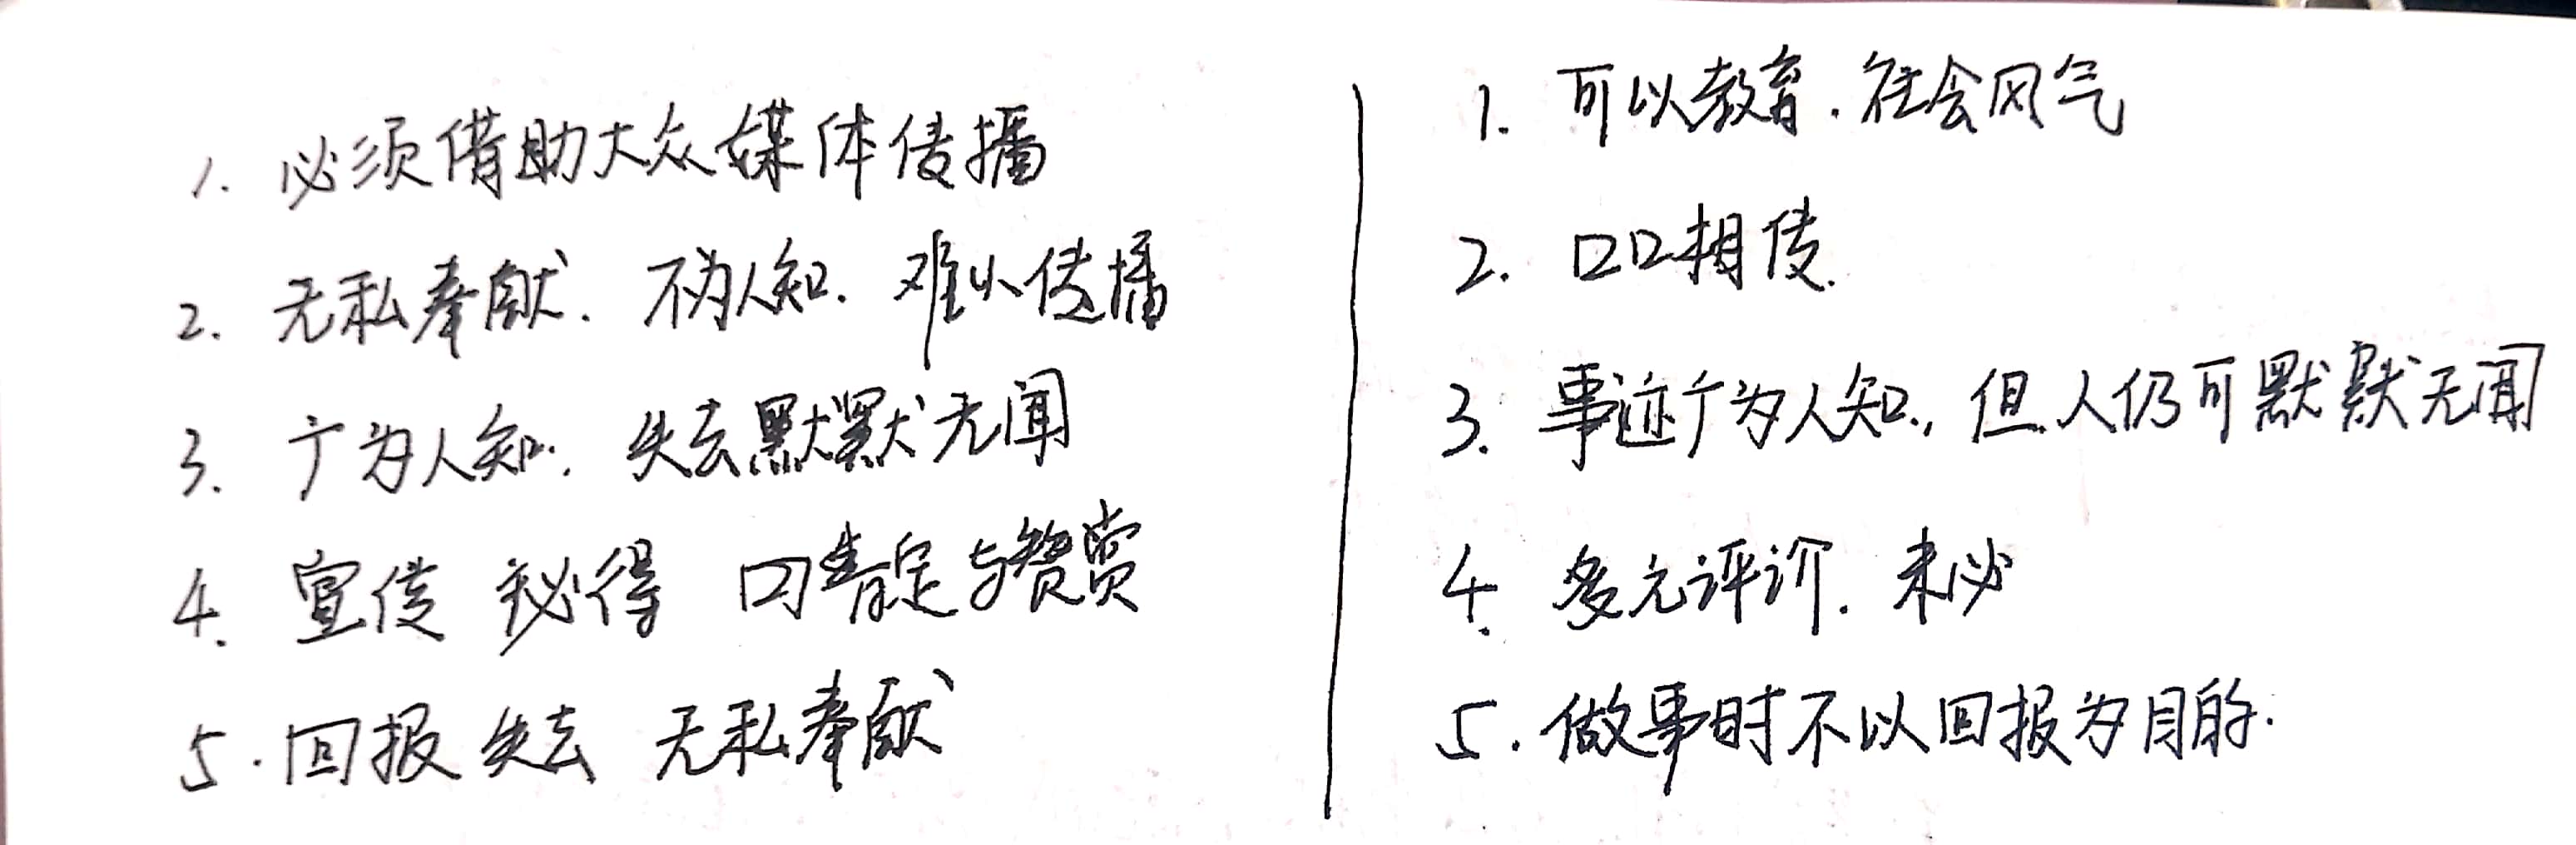 1. 必须借助大众媒体传播
2. 无私奉献. 不为人知. 难以传播
3. 广为人知. 失去默默无闻
4. 宣传 必得 肯定与赞赏
5. 回报 失去 无私奉献
1. 可以教育. 社会风气
2. 口口相传.
3. 事迹广为人知, 但人仍可默默无闻
4. 多元评价. 未必
5. 做事时不以回报为目的.